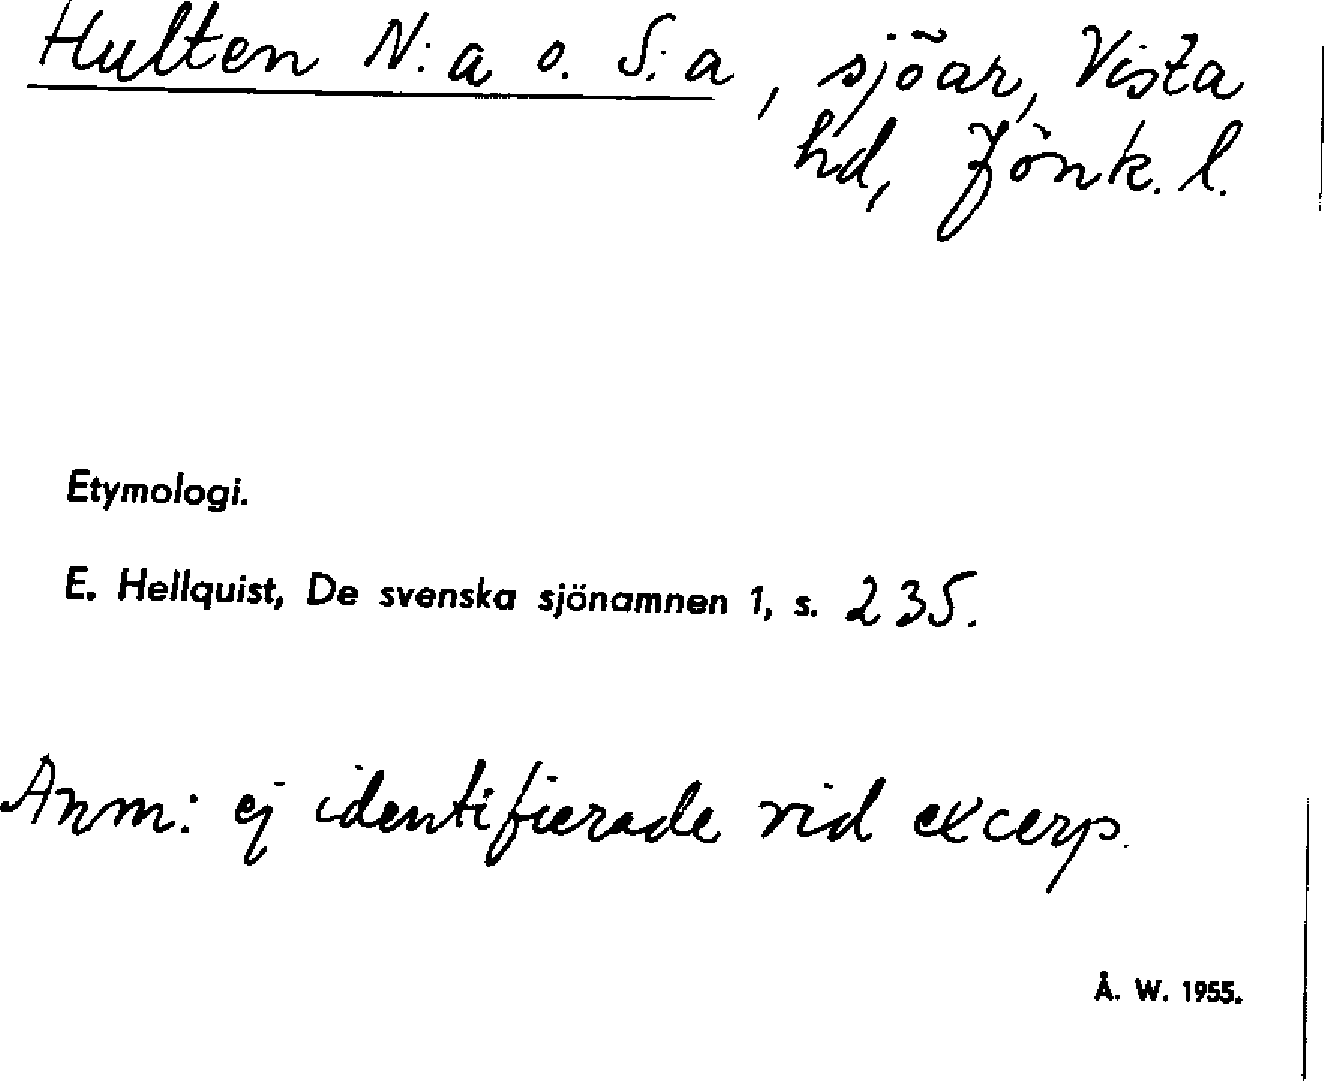 Hulten N:a o. S:a, sjöar, Vista
hd, Jönk. l.
Etymologi.
E. Hellquist, De svenska sjönamnen 1, s. 235.
Anm: ej identifierade vid excerp.
Å. W. 1955.